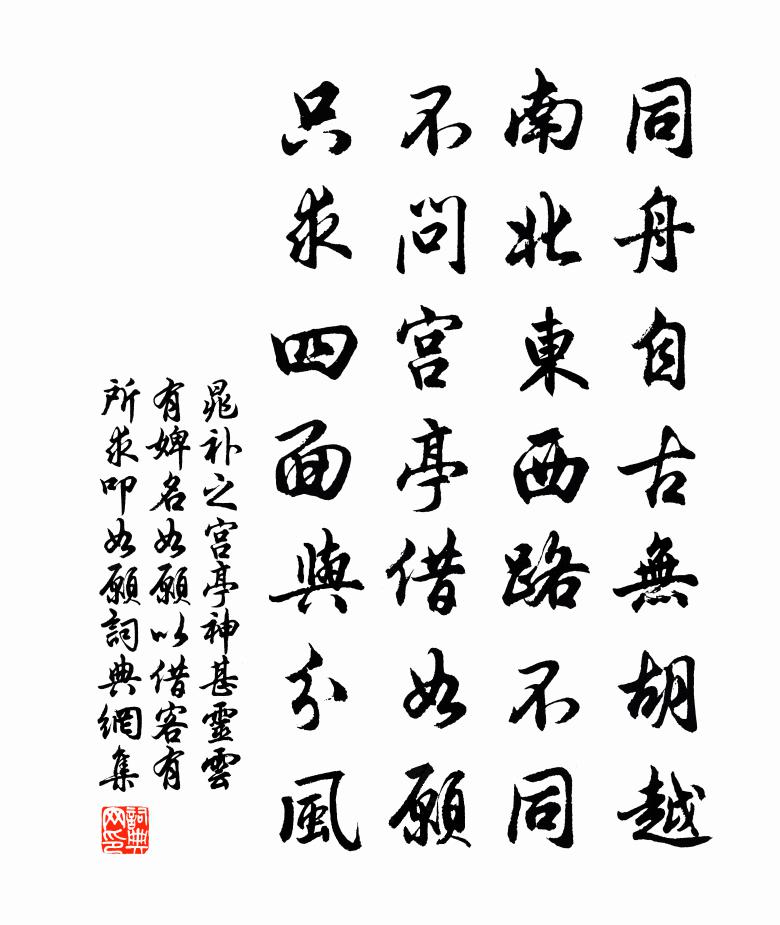 同舟自古無胡越
南北東西路不同
不問宫亭借如願
只求四面與分風
晁补之宫亭神甚靈雲
有婢名如願以借客有
所求叩如願詞典網集
詞典
网印